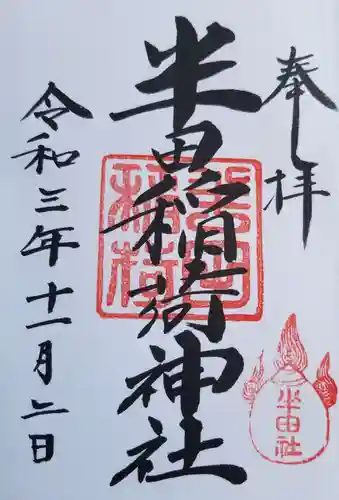 奉拝
半田稲荷神社
令和三年十一月二日
半田稲荷
半田社